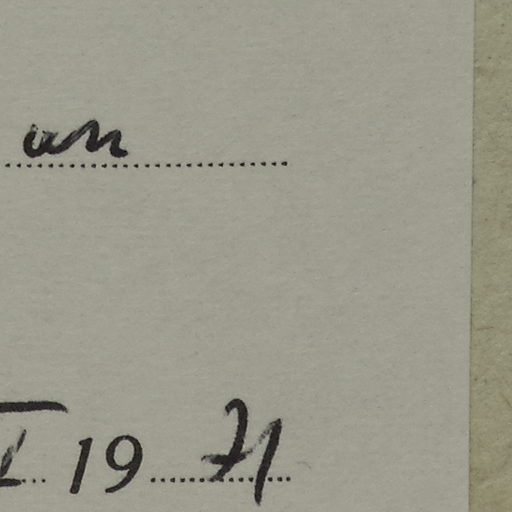 an
19 71